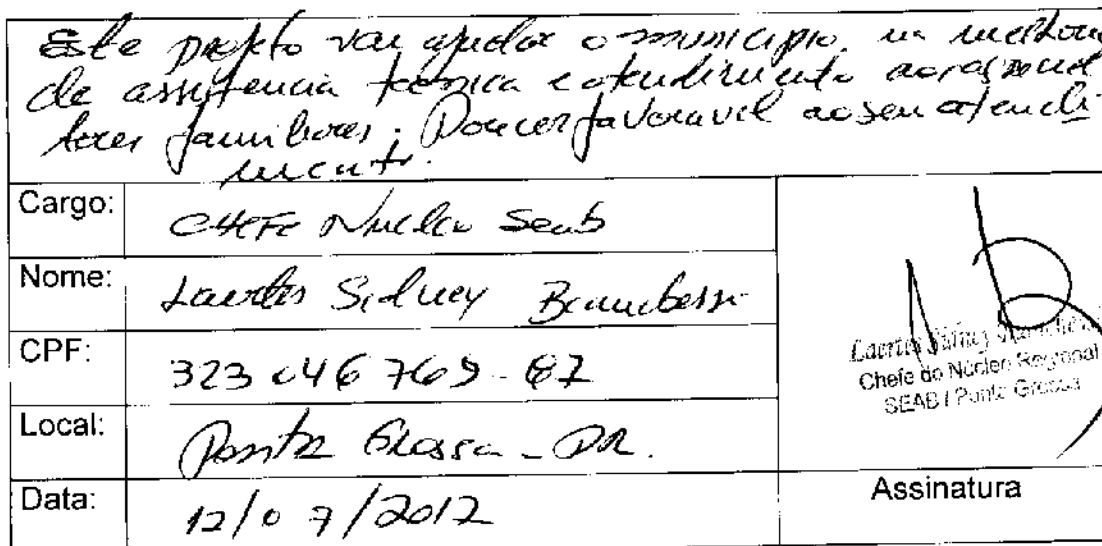 Este projeto vai ajudar o municipio, na melhoria
de assistencia tecnica e atendimento aos
familiares. Parecer favoravel ao seu atendi
mento.
Cargo: CHEFE Nucleo Seab
Nome: Laertes Sidney
CPF: 323 046 769-87
Local: Ponta Grossa - PR.
Data: 12/07/2012
Laertes Sidney
Chefe do Núcleo Regional
SEAB / Ponta Grossa
Assinatura